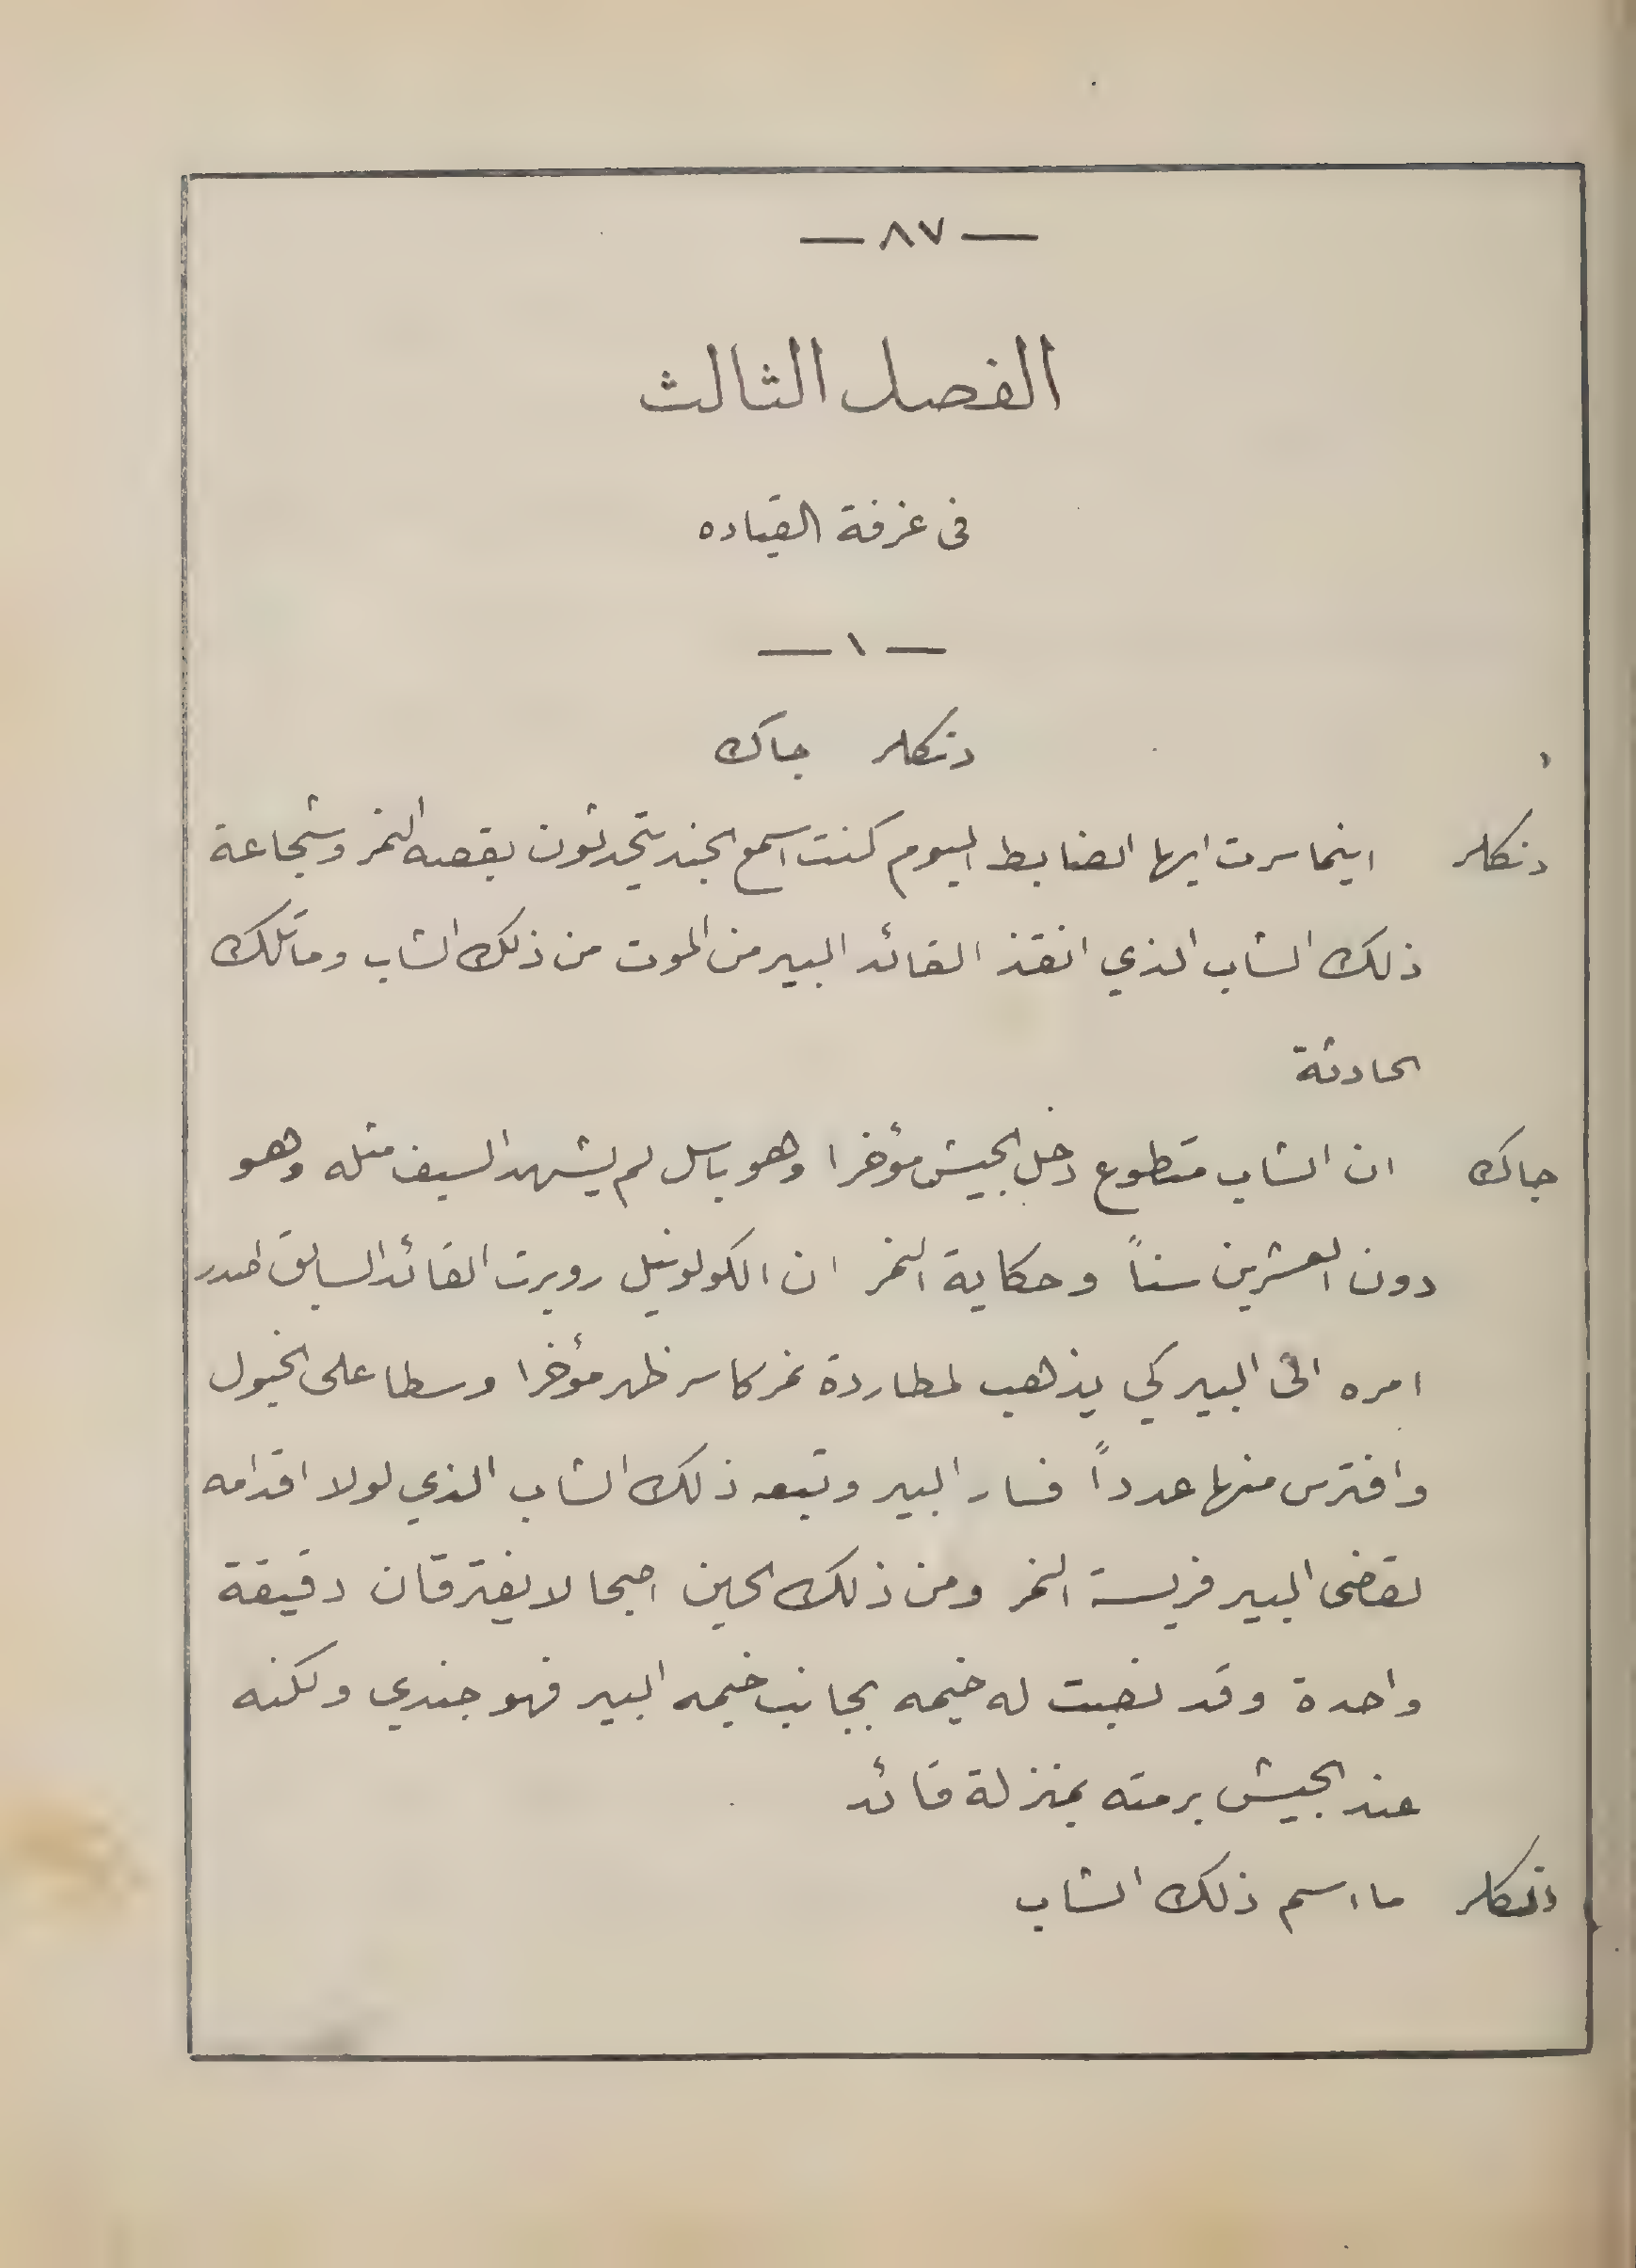 — ٨٧ —
الفصل الثالث
فى غرفة القياده
— ١ —
دنكلر جاك
دنكلر اينما سرت ايها الضابط اليوم كنت اسمع الجند يتحدثون بقصه النمر وشجاعة
ذلك الشاب الذي انقذ القائد البير من الموت من ذلك الشاب وما تلك
الحادثة
جاك ان الشاب متطوع دخل الجيش مؤخرا وهو باسل لم يشهد السيف مثله وهو
دون العشرين سناً وحكاية النمر ان الكولونيل روبرت القائد السابق اصدر
امره الى البير كي يذهب لمطاردة نمر كاسر ظهر مؤخرا وسطا على الخيول
وافترس منها عدداً فسار البير وتبعه ذلك الشاب الذي لولا اقدامه
لقضى البير فريسة النمر ومن ذلك الحين اصبحا لا يفترقان دقيقة
واحدة وقد نصبت له خيمه بجانب خيمه البير فهو جندي ولكنه
عند الجيش برمته بمنزلة قائد
دنكلر ما اسم ذلك الشاب